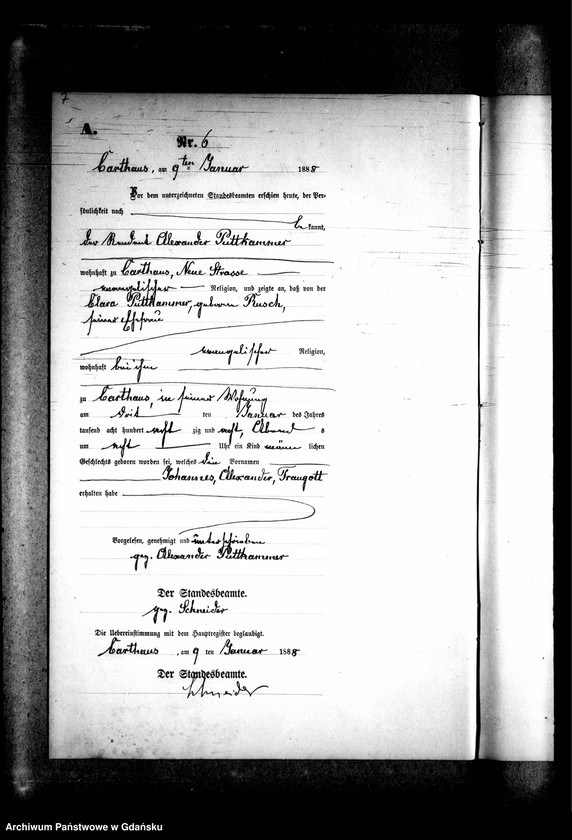 7
A.
Nr. 6
Carthaus, am 9ten Januar 1888
Vor dem unterzeichneten Standesbeamten erschien heute, der Per-
sönlichkeit nach
bekannt,
der Rendant Alexander Puttkammer
wohnhaft zu Carthaus, Neue Strasse
evangelischer Religion, und zeigte an, daß von der
Clara Puttkammer, geborene Rusch,
seiner Ehefrau
evangelischer Religion,
wohnhaft bei ihm
zu Carthaus, in seiner Wohnung
am drit ten Januar des Jahres
tausend acht hundert acht zig und acht, Abend s
um acht Uhr ein Kind männ lichen
Geschlechts geboren worden sei, welches die Vornamen
Johannes, Alexander, Traugott
erhalten habe
Vorgelesen, genehmigt und unterschrieben
gez. Alexander Puttkammer
Der Standesbeamte.
gez. Schneider
Die Uebereinstimmung mit dem Hauptregister beglaubigt.
Carthaus, am 9 ten Januar 1888
Der Standesbeamte.
Schneider
Archiwum Państwowe w Gdańsku